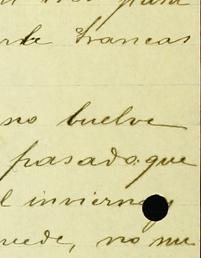 para
trancas
no buelve
pasado que
l invierno,
uede, no me